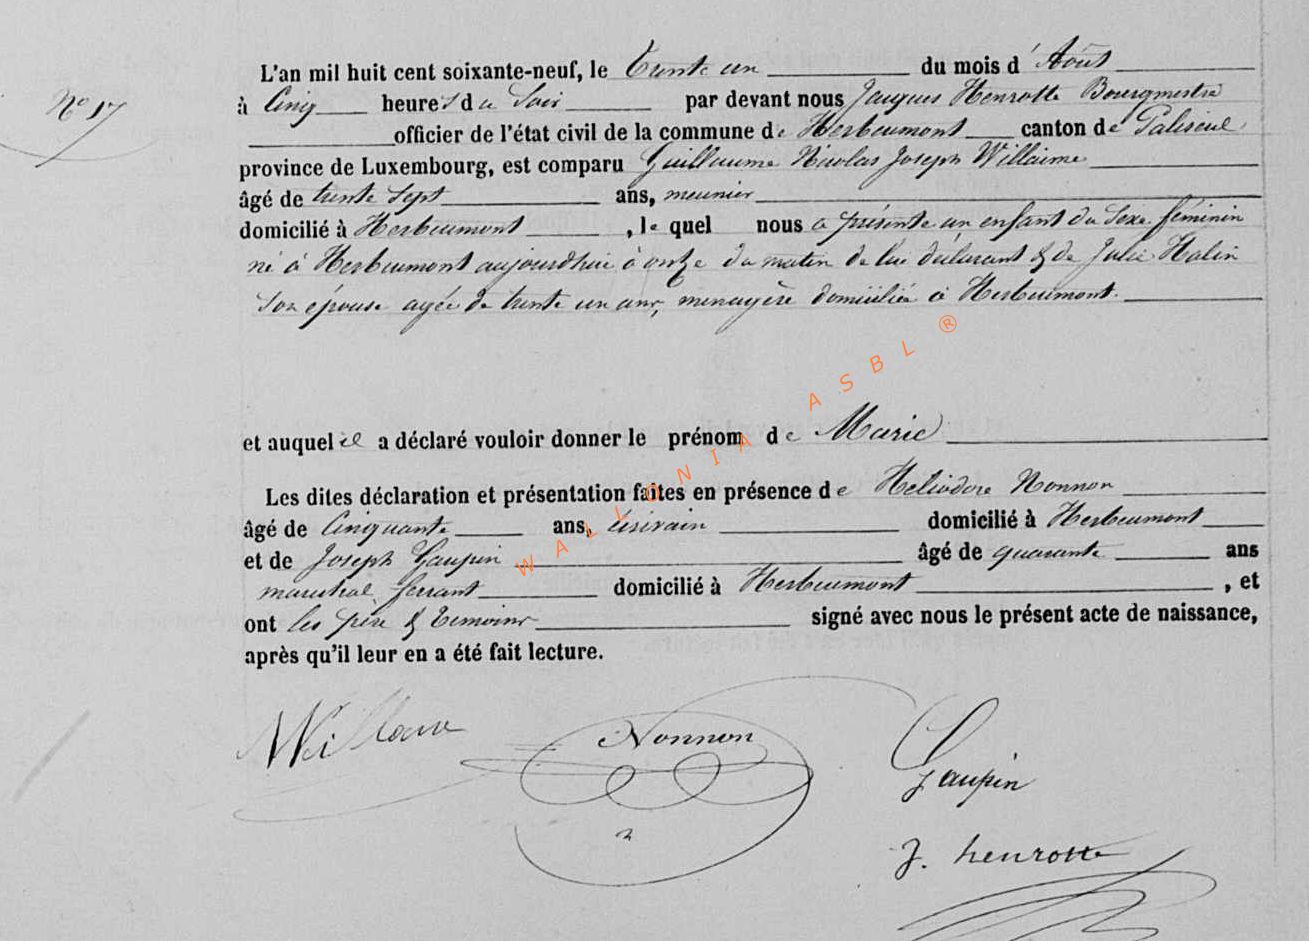 L'an mil huit cent soixante-neuf, le Trente un du mois d' Août
N° 17
à Cinq heures du Soir par devant nous Jacques Henrotte Bourgmestre
officier de l'état civil de la commune de Herbeumont canton de Paliseul
province de Luxembourg, est comparu Guillaume Nicolas Joseph Willaime
âgé de trente sept ans, meunier
domicilié à Herbeumont , le quel nous a présenté un enfant du Sexe féminin
né à Herbeumont aujourdhui à onze du matin de lui déclarant & de Julie Halin
Son épouse agée de trente un ans, menagère domiciliée à Herbeumont.
et auquel il a déclaré vouloir donner le prénom de Marie
Les dites déclaration et présentation faites en présence de Héliodore Nonnon
âgé de Cinquante ans, écrivain domicilié à Herbeumont
et de Joseph Gaupin âgé de quarante ans
marechal ferrant domicilié à Herbeumont , et
ont les père & témoins signé avec nous le présent acte de naissance,
après qu'il leur en a été fait lecture.
WALLONIA ASBL ®
Nonnon
Gaupin
J. henrotte